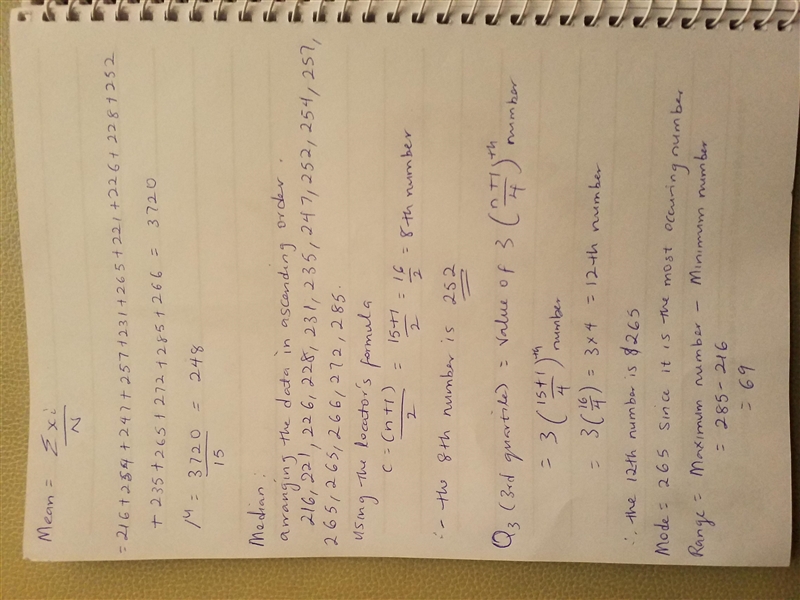 Mean = Σxi / N
= 216+254+247+257+231+265+221+226+228+252
+235+265+272+285+266 = 3720
μ = 3720 / 15 = 248
Median:
arranging the data in ascending order.
216, 221, 226, 228, 231, 235, 247, 252, 254, 257,
265, 265, 266, 272, 285.
using the Locator's formula
c = (n+1) / 2 = 15+1 / 2 = 16 / 2 = 8th number
∴ the 8th number is 252
Q3 (3rd quartile) = Value of 3 (n+1 / 4)th number
= 3 (15+1 / 4)th number
= 3 (16 / 4) = 3 x 4 = 12th number
∴ the 12th number is $265
Mode = 265 since it is the most occuring number
Range = Maximum number - Minimum number
= 285 - 216
= 69